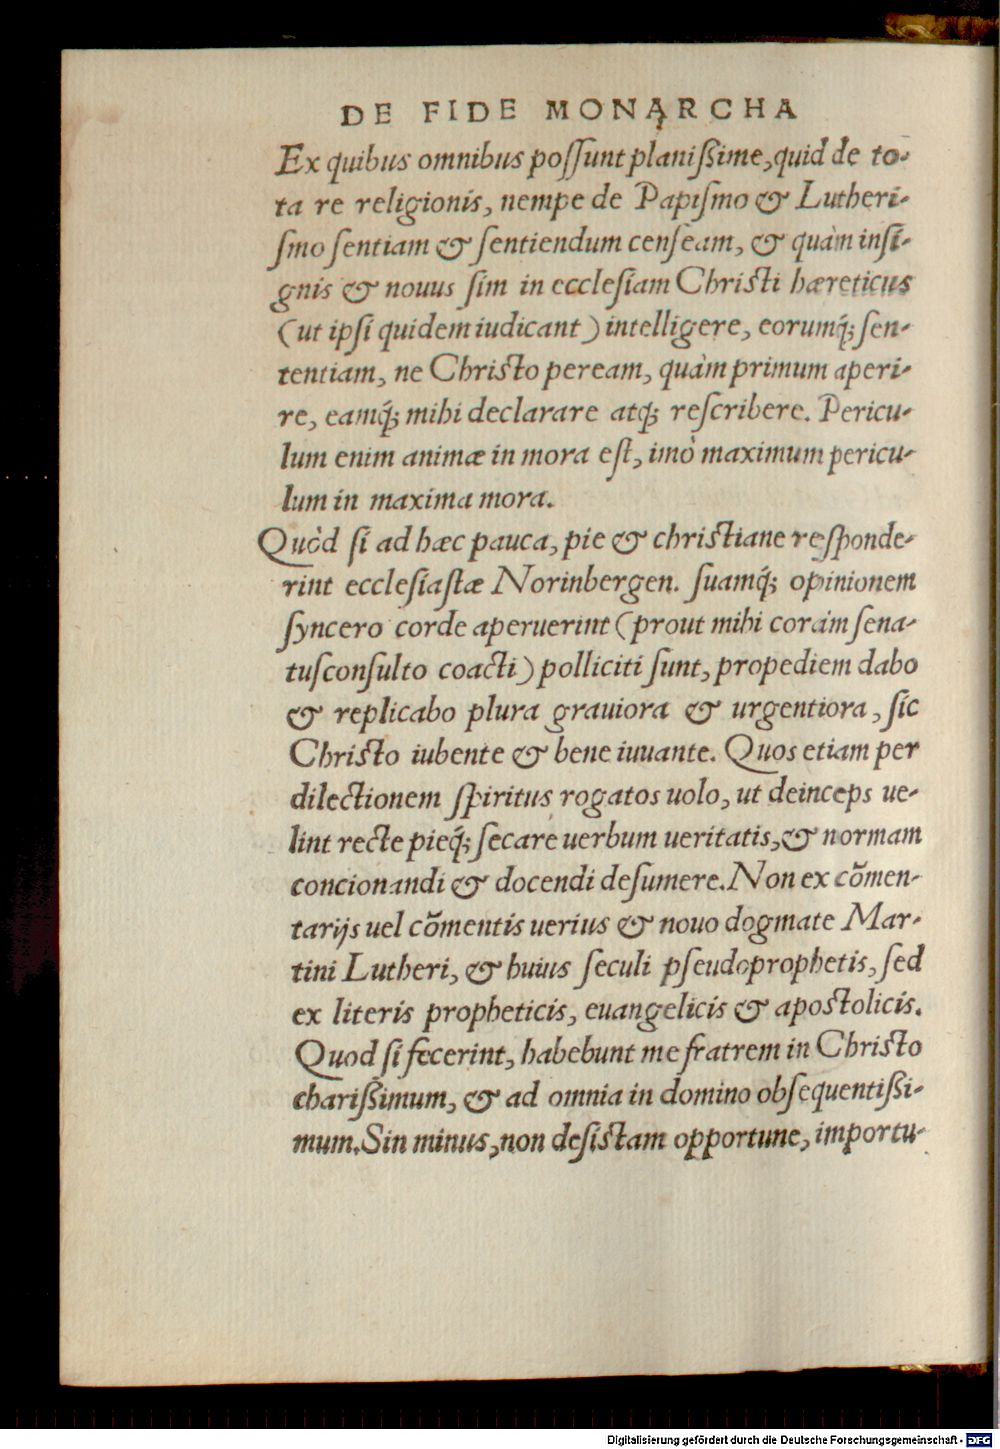 DE FIDE MONARCHA
Ex quibus omnibus poſſunt planiſsime, quid de to-
ta re religionis, nempe de Papiſmo & Lutheri-
ſmo ſentiam & ſentiendum cenſeam, & quàm inſi-
gnis & nouus ſim in eccleſiam Chriſti hæreticus
(ut ipſi quidem iudicant) intelligere, eorumq́; ſen-
tentiam, ne Chriſto peream, quàm primum aperi-
re, eamq́; mihi declarare atq; reſcribere. Pericu-
lum enim animæ in mora eſt, imò maximum pericu-
lum in maxima mora.
Quòd ſi ad hæc pauca, pie & chriſtiane reſponde-
rint eccleſiaſtæ Norinbergen. ſuamq́; opinionem
ſyncero corde aperuerint (prout mihi coràm ſena-
tuſconſulto coacti) polliciti ſunt, propediem dabo
& replicabo plura grauiora & urgentiora, ſic
Chriſto iubente & bene iuuante. Quos etiam per
dilectionem ſpiritus rogatos uolo, ut deinceps ue-
lint recte pieq́; ſecare uerbum ueritatis, & normam
concionandi & docendi deſumere. Non ex cõmen-
tarijs uel cõmentis uerius & nouo dogmate Mar-
tini Lutheri, & huius ſeculi pſeudoprophetis, ſed
ex literis propheticis, euangelicis & apoſtolicis.
Quod ſi fecerint, habebunt me fratrem in Chriſto
chariſsimum, & ad omnia in domino obſequentiſsi-
mum. Sin minus, non deſiſtam opportune, importu-
Digitalisierung gefördert durch die Deutsche Forschungsgemeinschaft - DFG